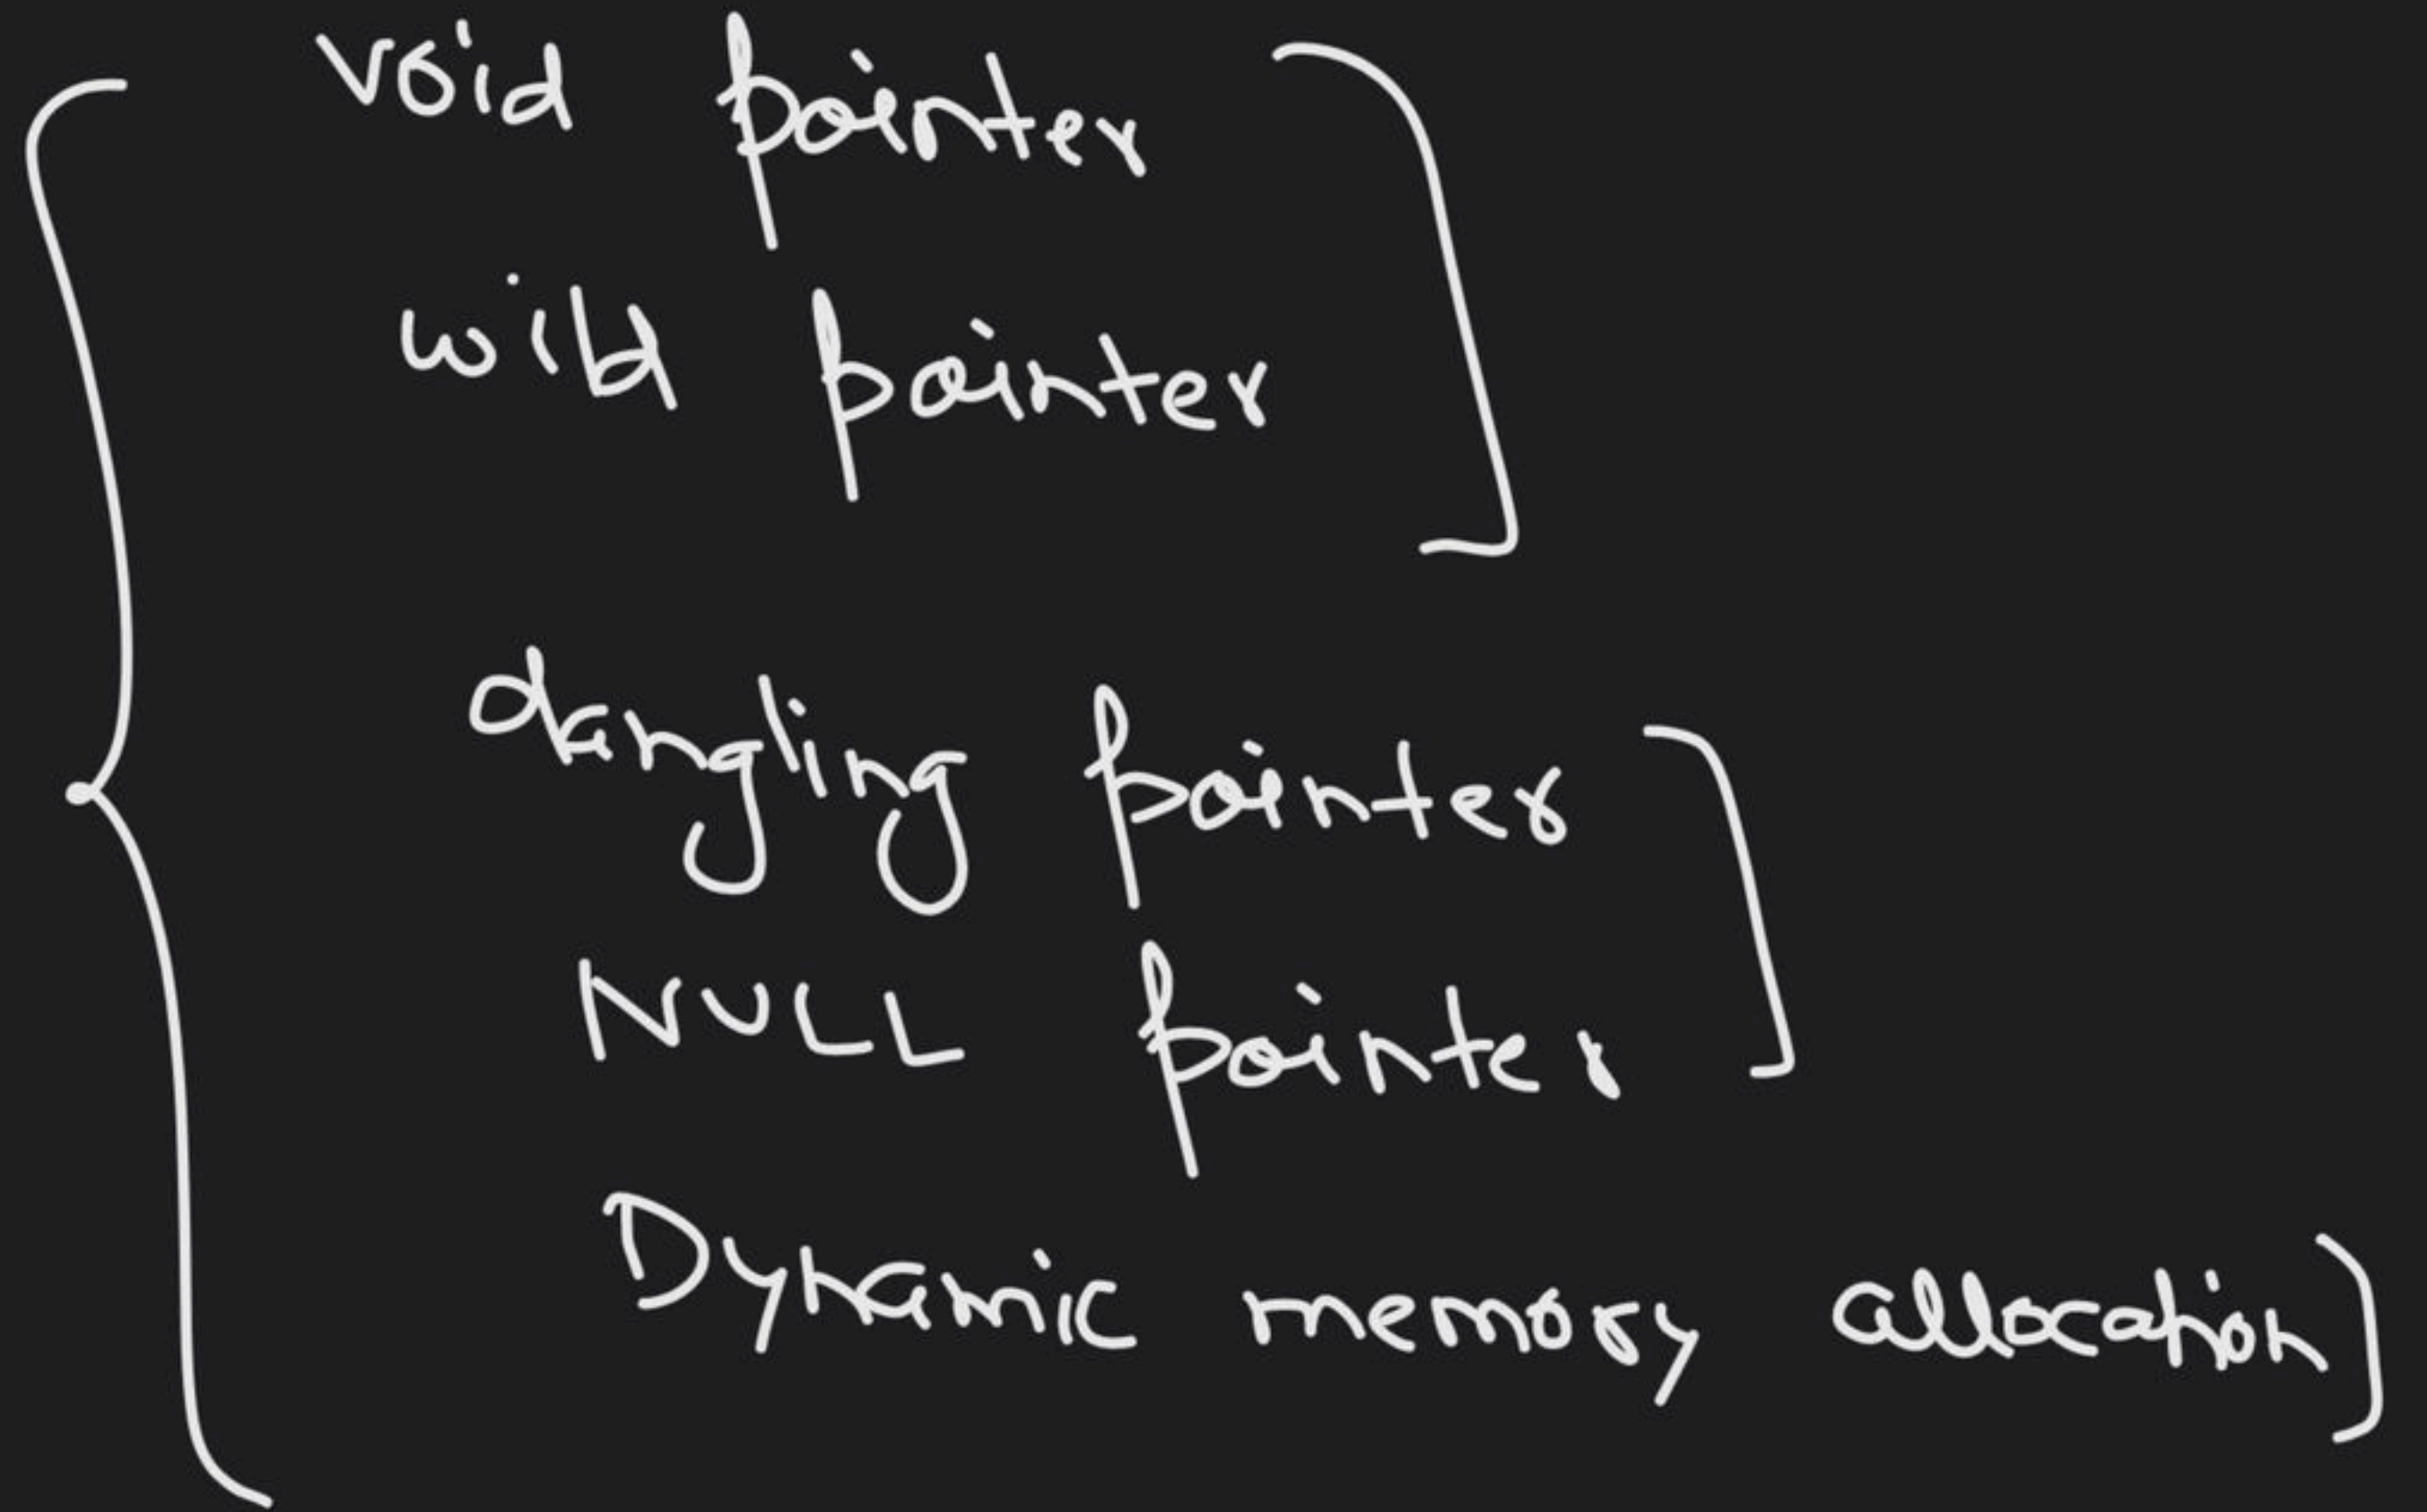 void pointer
wild pointer
dangling pointer
NULL pointer
Dynamic memory allocation